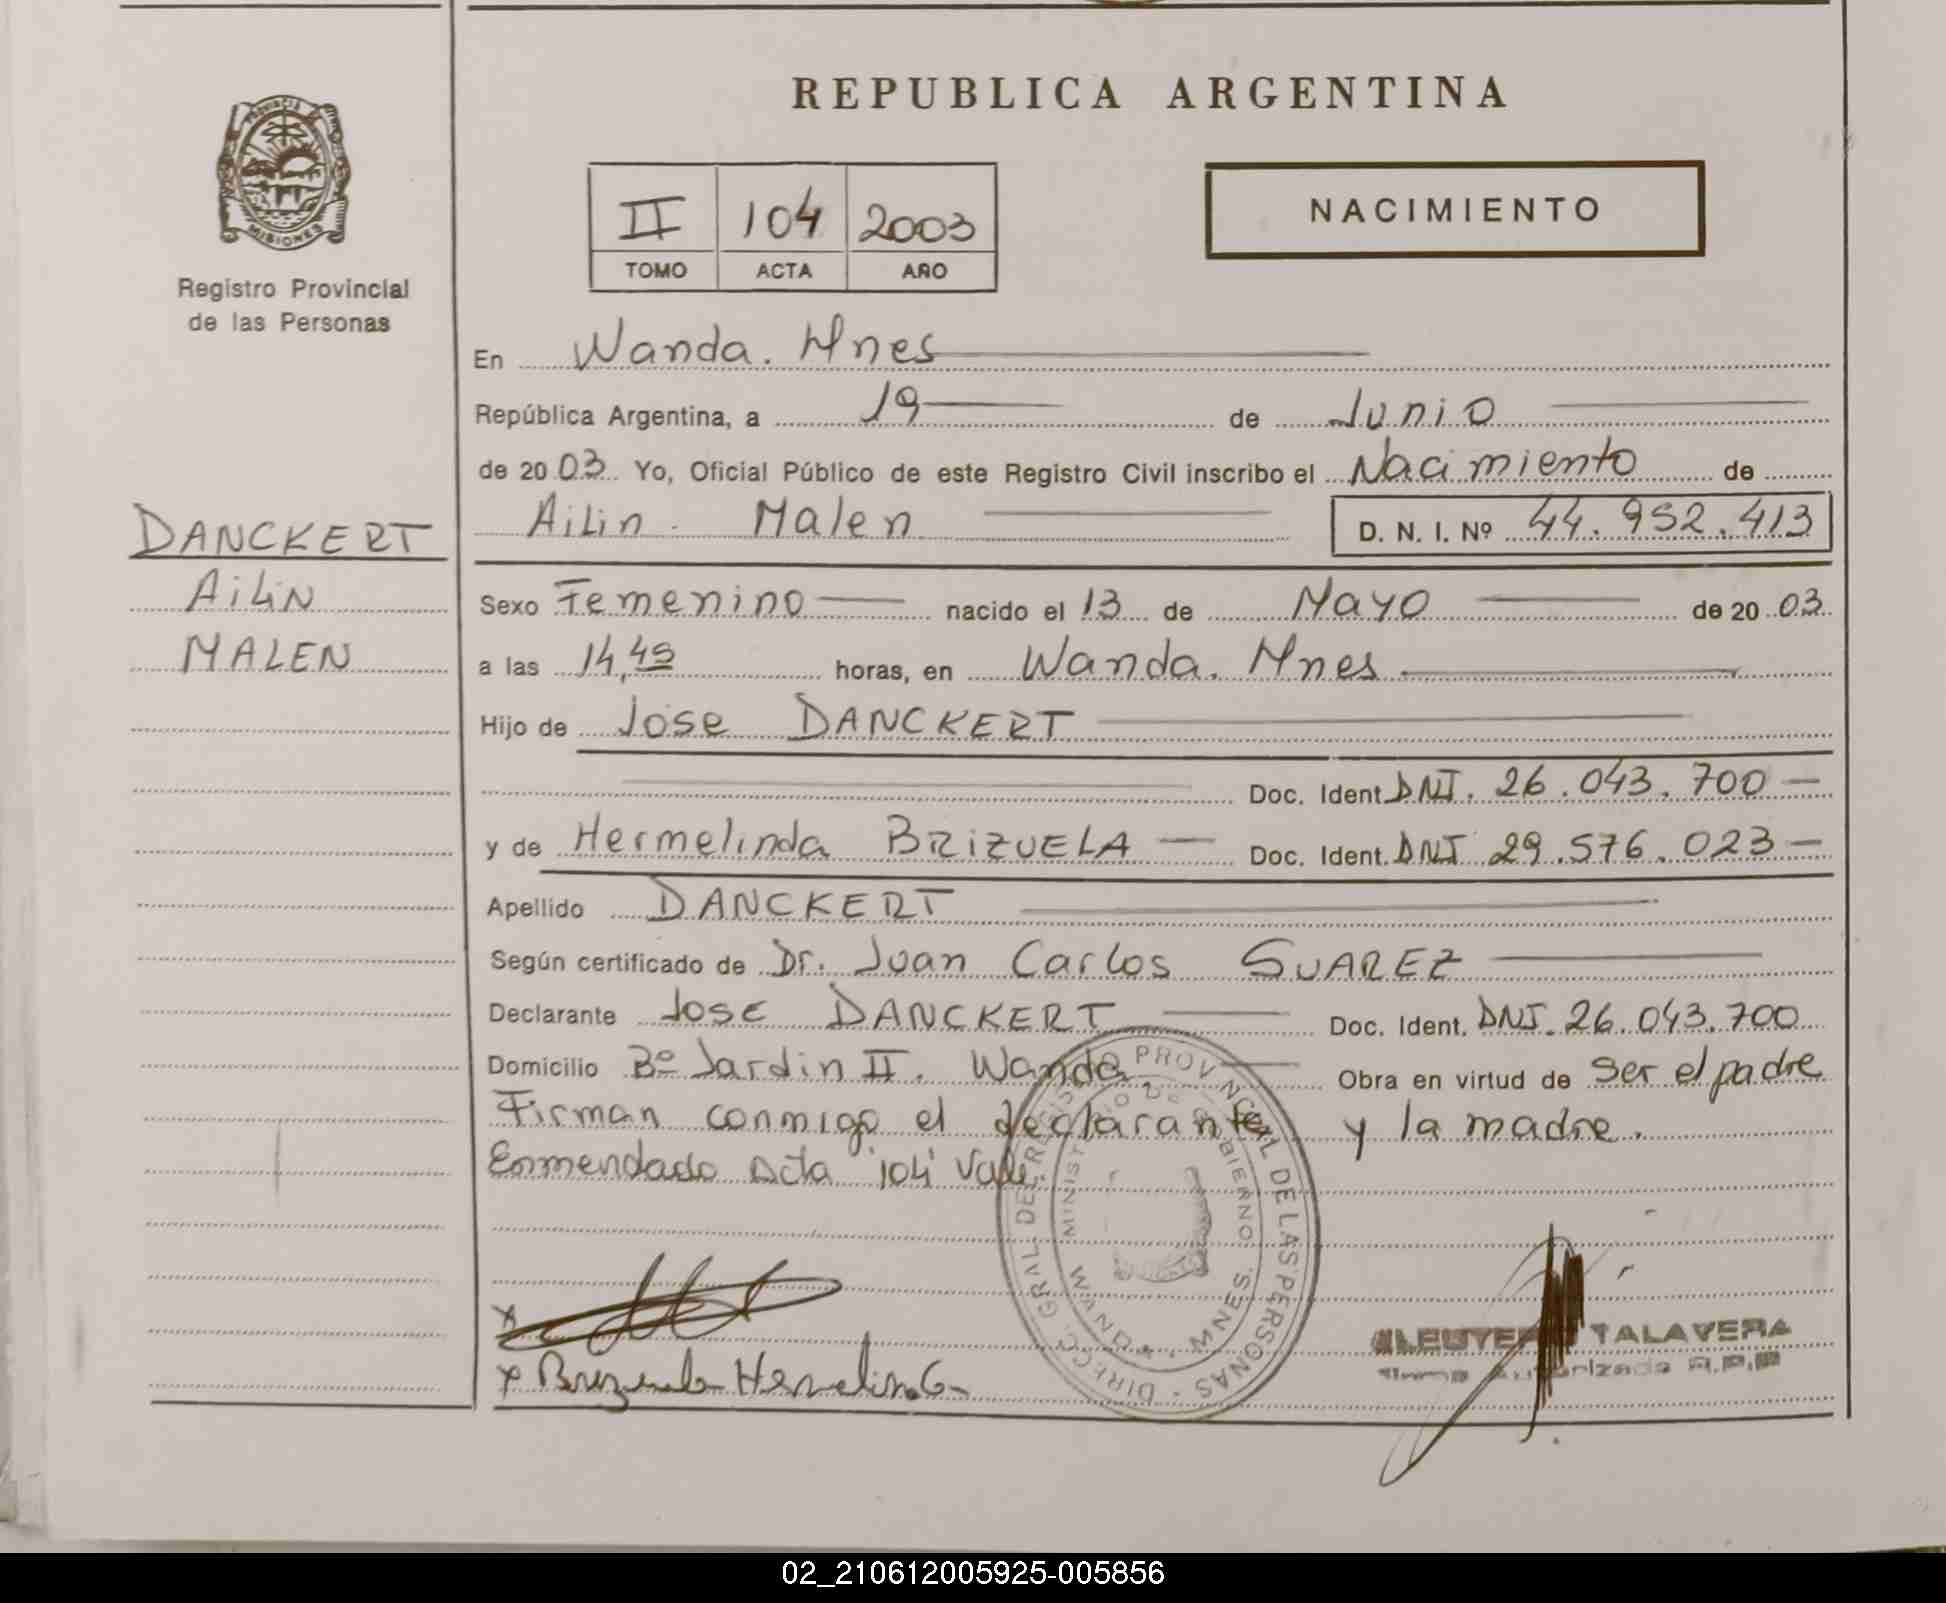 REPUBLICA ARGENTINA
PROVINCIA
MISIONES
Registro Provincial
de las Personas
II 104 2003
TOMO ACTA AÑO
NACIMIENTO
En Wanda. Mnes
República Argentina, a 19 de Junio
de 2003 Yo, Oficial Público de este Registro Civil inscribo el Nacimiento de
Ailin Malen D. N. I. Nº 44.952.413
DANCKERT
AiLiN
MALEN
Sexo Femenino nacido el 13 de Mayo de 2003
a las 14,45 horas, en Wanda. Mnes
Hijo de Jose DANCKERT
Doc. Ident. DNI. 26.043.700
y de Hermelinda BRiZUELA Doc. Ident. DNI 29.576.023
Apellido DANCKERT
Según certificado de Dr. Juan Carlos SUAREZ
Declarante Jose DANCKERT Doc. Ident. DNI. 26.043.700
Domicilio Bº Jardin II. Wanda Obra en virtud de ser el padre
Firman conmigo el declarante y la madre.
Enmendado acta "104" Vale.
DIRECC. GRAL. DEL REGISTRO PROVINCIAL DE LAS PERSONAS
MINISTERIO DE GOBIERNO
WANDA MNES.
x
x Brizuela Hermelinda
ELEUTERIO TALAVERA
Firma Autorizada R.P.P
02_210612005925-005856